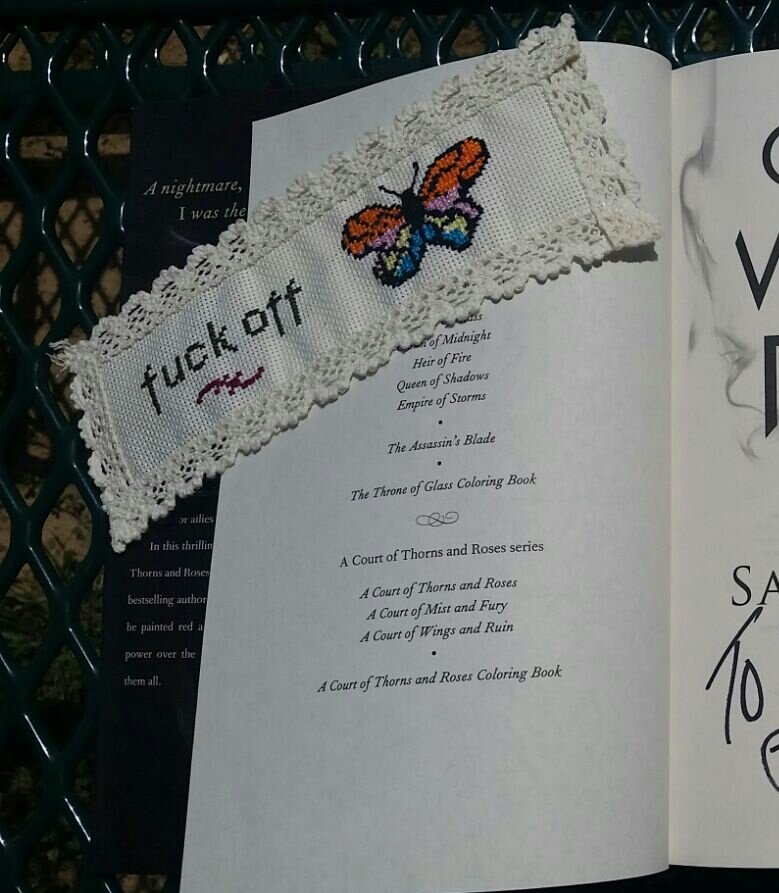 A nightmare,
I was the
fuck off
of Midnight
Heir of Fire
Queen of Shadows
Empire of Storms
•
The Assassin's Blade
•
The Throne of Glass Coloring Book
A Court of Thorns and Roses series
A Court of Thorns and Roses
A Court of Mist and Fury
A Court of Wings and Ruin
•
A Court of Thorns and Roses Coloring Book
or allies
In this thrillin
Thorns and Roses
bestselling author
be painted red a
power over the
them all.
SA
To